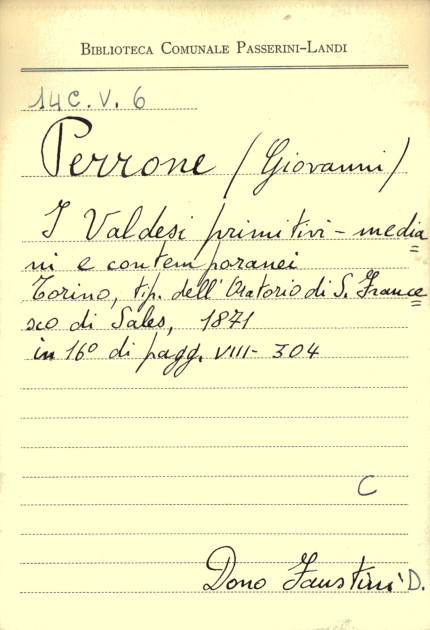 BIBLIOTECA COMUNALE PASSERINI-LANDI
14C.V.6
Perrone (Giovanni)
I Valdesi primitivi - media
ni e contemporanei
Torino, tip. dell'Oratorio di S. France
sco di Sales, 1871
in 16° di pagg. VIII - 304
C
Dono Faustini D.